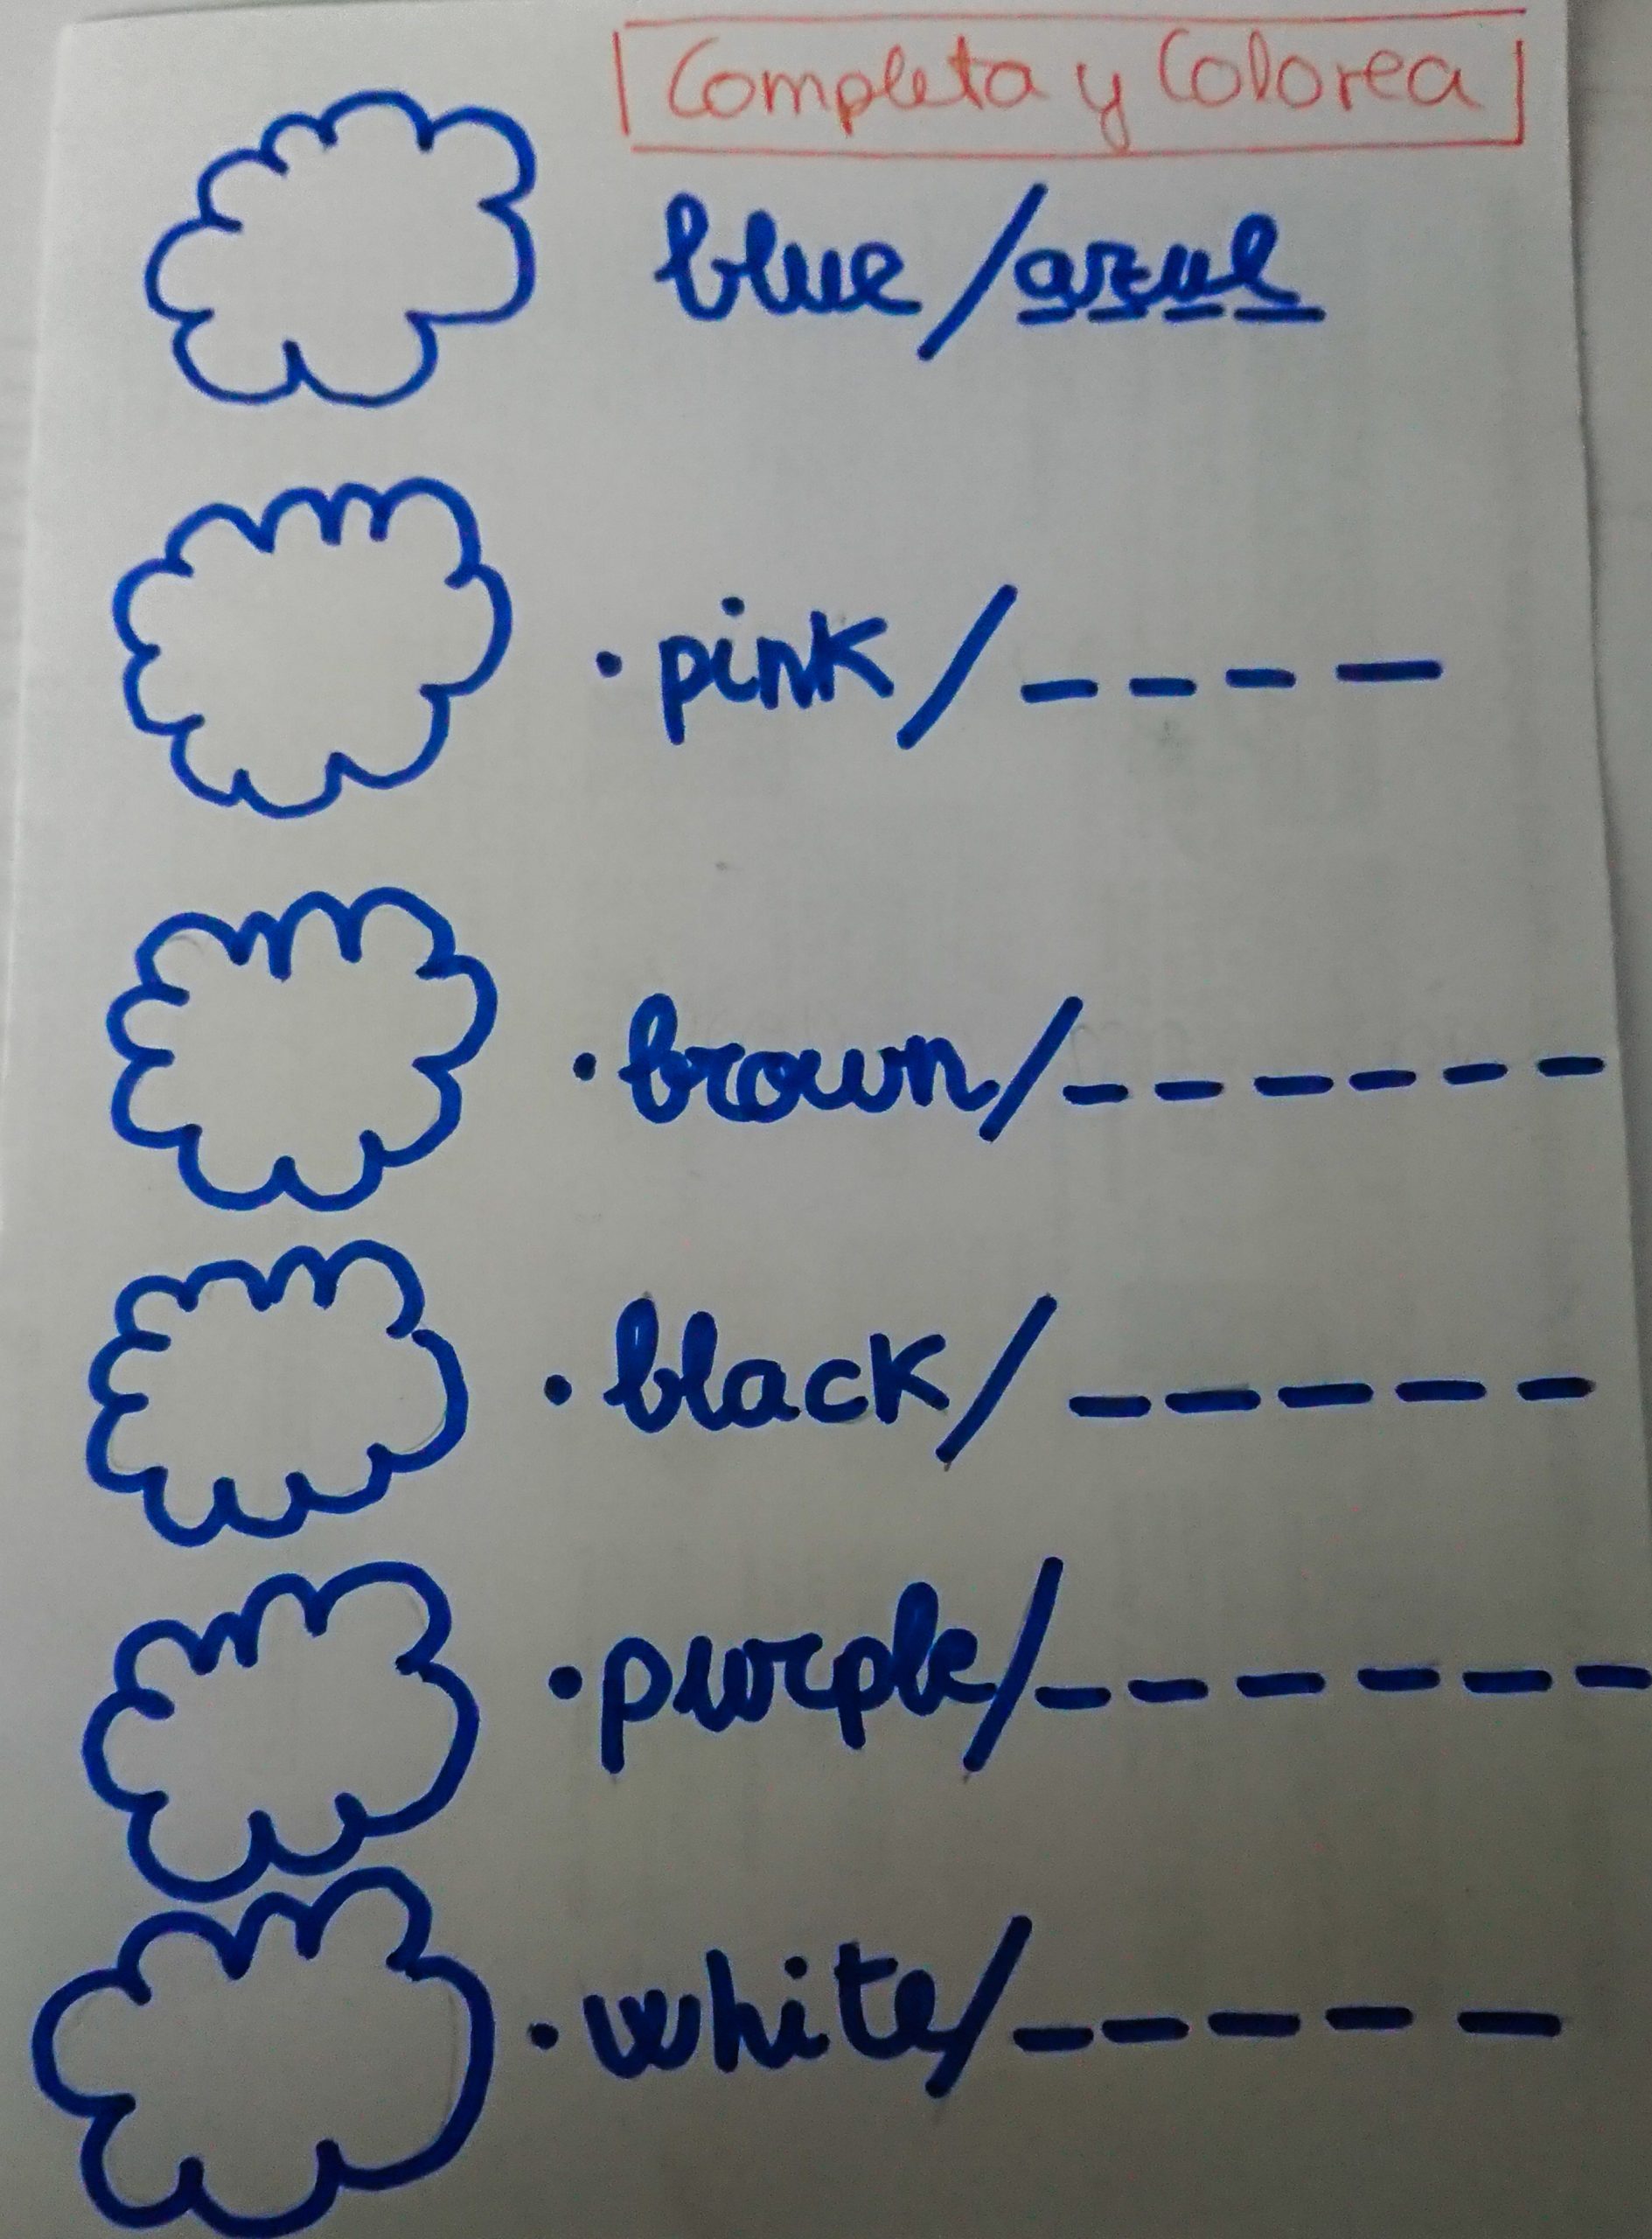 Completa y Colorea
blue/azul
·pink/_ _ _ _
·brown/_ _ _ _ _ _
·black/_ _ _ _ _
·purple/_ _ _ _ _ _
·white/_ _ _ _ _